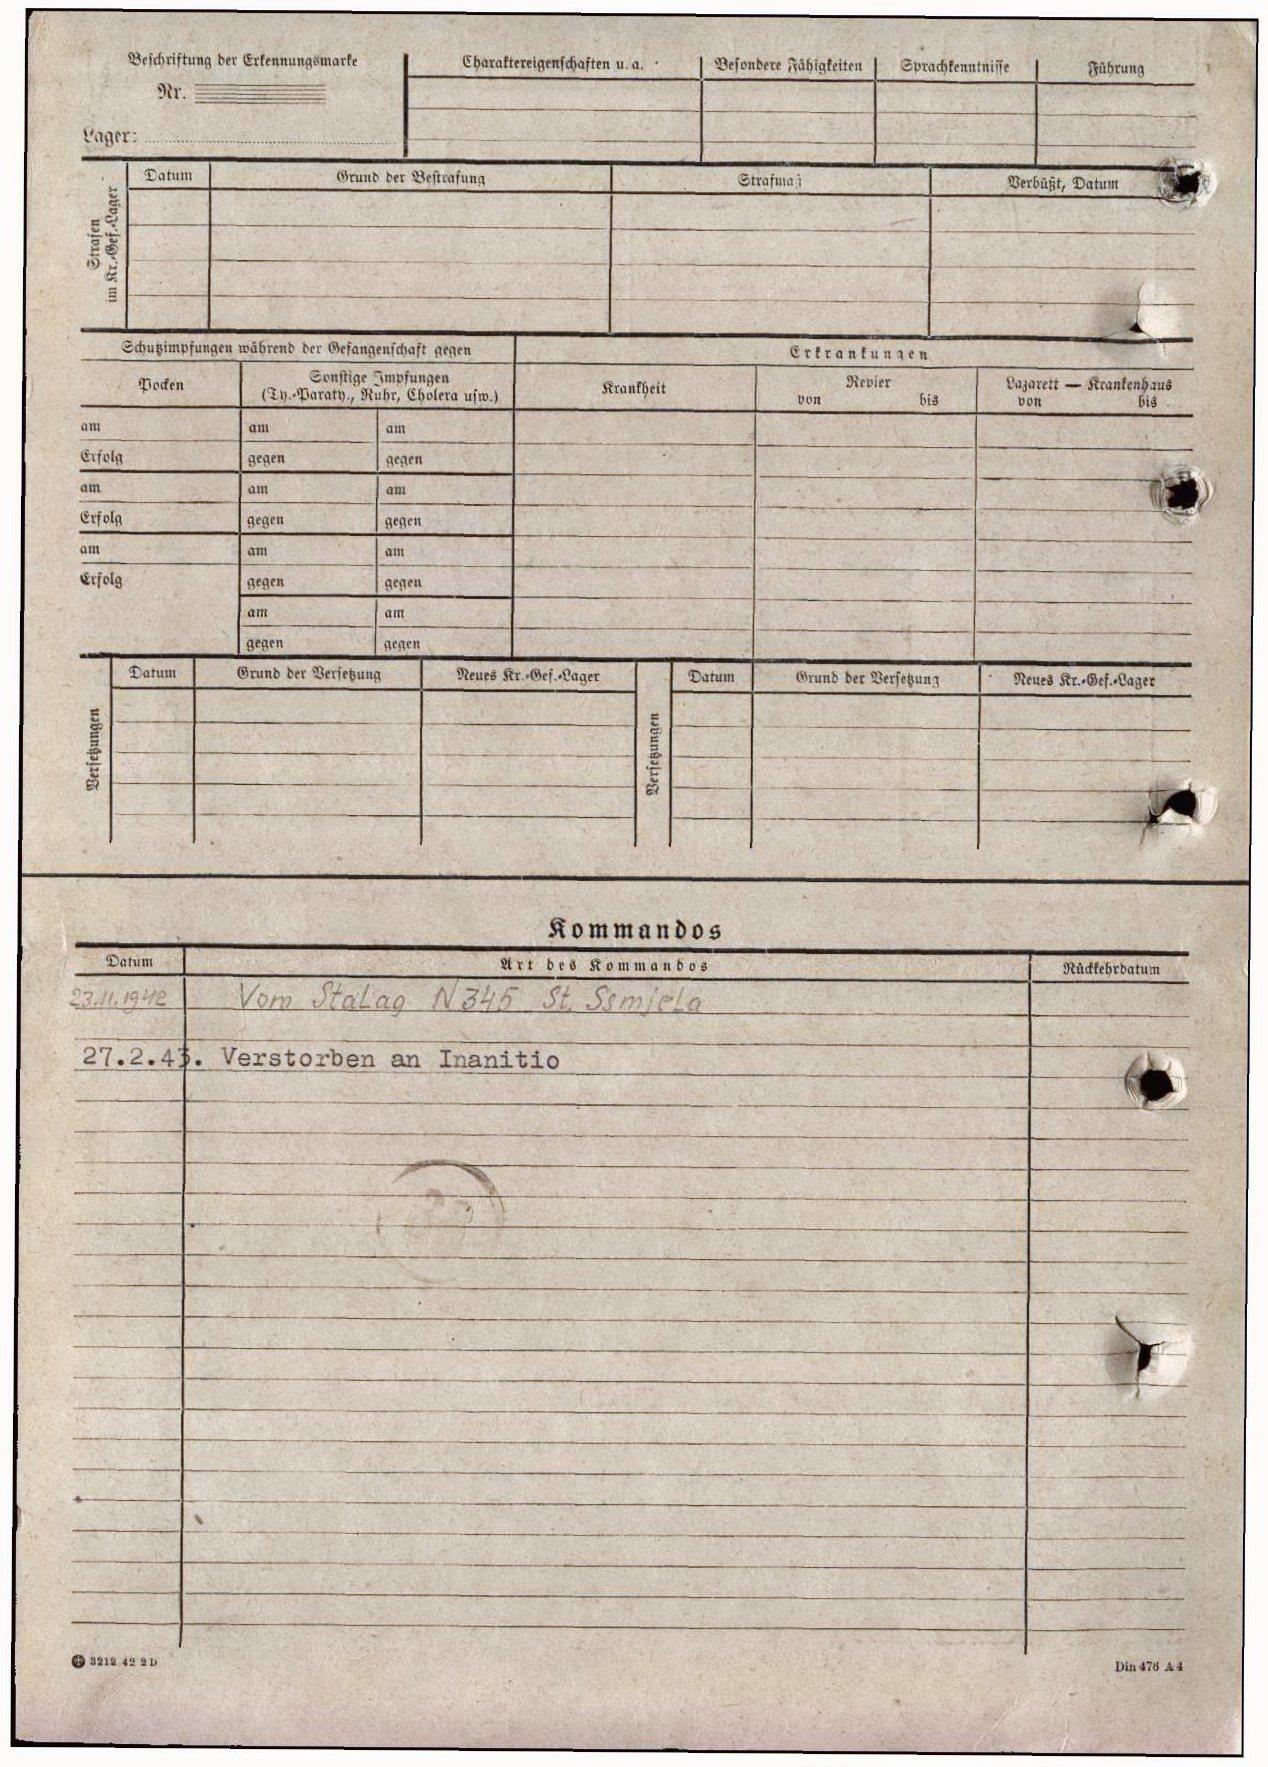 Beschriftung der Erkennungsmarke
Nr.
Lager:
Charaktereigenschaften u. a.
Besondere Fähigkeiten
Sprachkenntnisse
Führung
Strafen
im Kr.-Gef.-Lager
Datum
Grund der Bestrafung
Strafmaß
Verbüßt, Datum
Schutzimpfungen während der Gefangenschaft gegen
Erkrankungen
Pocken
Sonstige Impfungen
(Ty.-Paraty., Ruhr, Cholera usw.)
Krankheit
Revier
von bis
Lazarett — Krankenhaus
von bis
am am am
Erfolg gegen gegen
am am am
Erfolg gegen gegen
am am am
Erfolg gegen gegen
am am
gegen gegen
Versetzungen
Datum Grund der Versetzung Neues Kr.-Gef.-Lager
Versetzungen
Datum Grund der Versetzung Neues Kr.-Gef.-Lager
Kommandos
Datum Art des Kommandos Rückkehrdatum
23.11.1942 Vom StaLag N 345 St. SsmjeLa
27.2.43. Verstorben an Inanitio
3212 42 2 D
Din 476 A 4